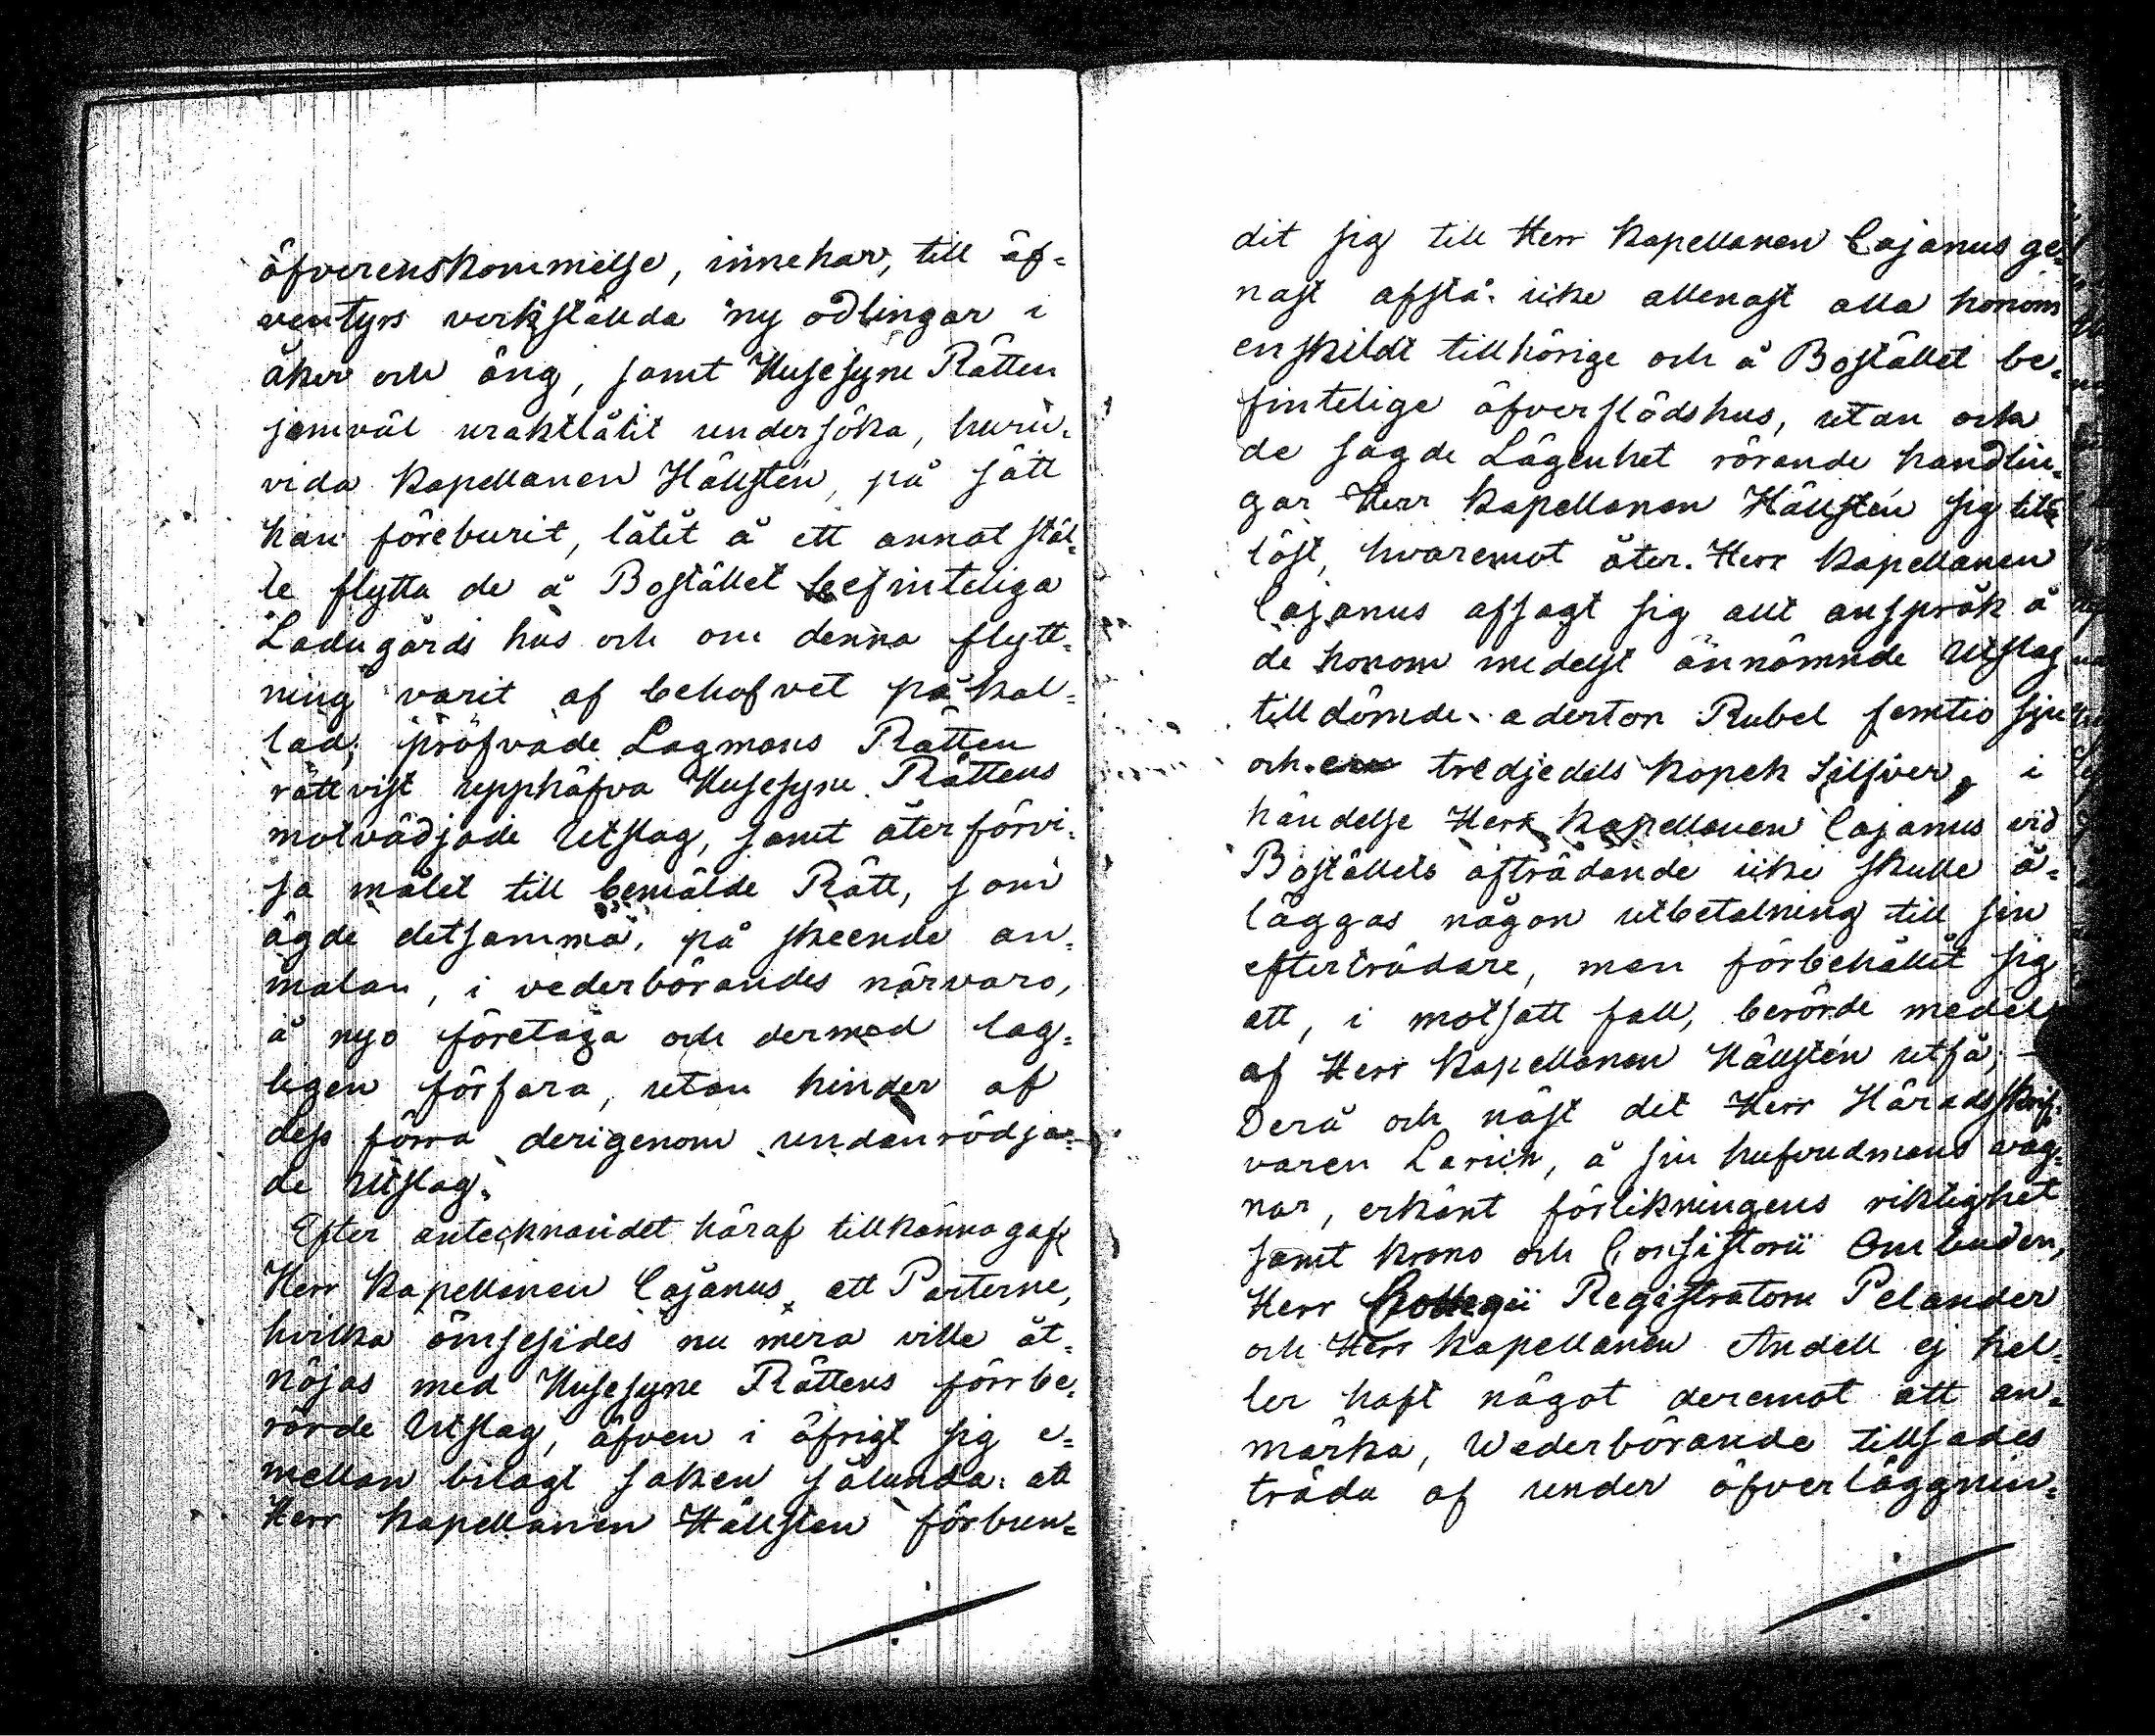 öfverenskommelse, innehar, till äf=
ventyrs verkställda ny odlingar i
åker och äng, samt Husesyne Rätten
jemväl uraktlåtit undersöka, huru=
vida Kapellanen Hällstén, på sätt
han föreburit, låtit å ett annat stäl=
le flytta de å Bostället befinteliga
Ladugårds hus och om denna flytt=
ning varit af behofvet på kal=
lad; pröfvade Lagmans Rätten
rättvist upphäfva Husesyne Rättens
motvädjade Utslag, samt återförvi=
sa målet till bemälde Rätt, som
ägde detsamma, på skeende an=
mälan, i vederbörandes närvaro,
å nyo företaga och dermed lag=
ligen förfara, utan hinder af
dess förra derigenom undanrödja=
de Utslag.
Efter antecknandet häraf tillkänna gaf
Herr Kapellanen Cajanus, att Parterne,
hvilka ömsesides nu mera ville åt=
nöjas med Husesyne Rättens förrbe=
rörde Utslag, äfven i öfrigt sig e=
mellan bilagt saken sålunda: att
Herr Kapellanen Hällsten förbun=
dit sig till Herr Kapellanen Cajanus ge=
nast afstå icke allenast alla honom
enskildt tillhörige och å Bostället be=
fintelige öfverflödshus, utan ock
de sagde Lägenhet rörande handlin=
gar Herr Kapellanen Hällstén sig till
löst, hvaremot åter Herr Kapellanen
Cajanus afsagt sig allt anspråk å
de honom medelst ännämnde Utslag
tilldömde aderton Rubel femtio sju
och en tredjedels kopek Silfver, i
händelse Herr Kapellanen Cajanus vid
Boställets afträdande icke skulle å=
läggas någon utbetalning till sin
efterträdare, men förbehållit sig
att, i motsatt fall, berörde medel
af Herr Kapellanen Hällstén utfå; –
Derå och näst det Herr Häradsskrif=
varen Larich, å sin hufvudmans väg=
nar, erkänt förlikningens riktighet
samt Krono och Consistorii Ombuden,
Herr Collegii Registratorn Pelander
och Herr Kapellanen Andell ej hel=
ler haft något deremot att an=
märka, Wederbörande tillsades
träda af under öfverläggnin=